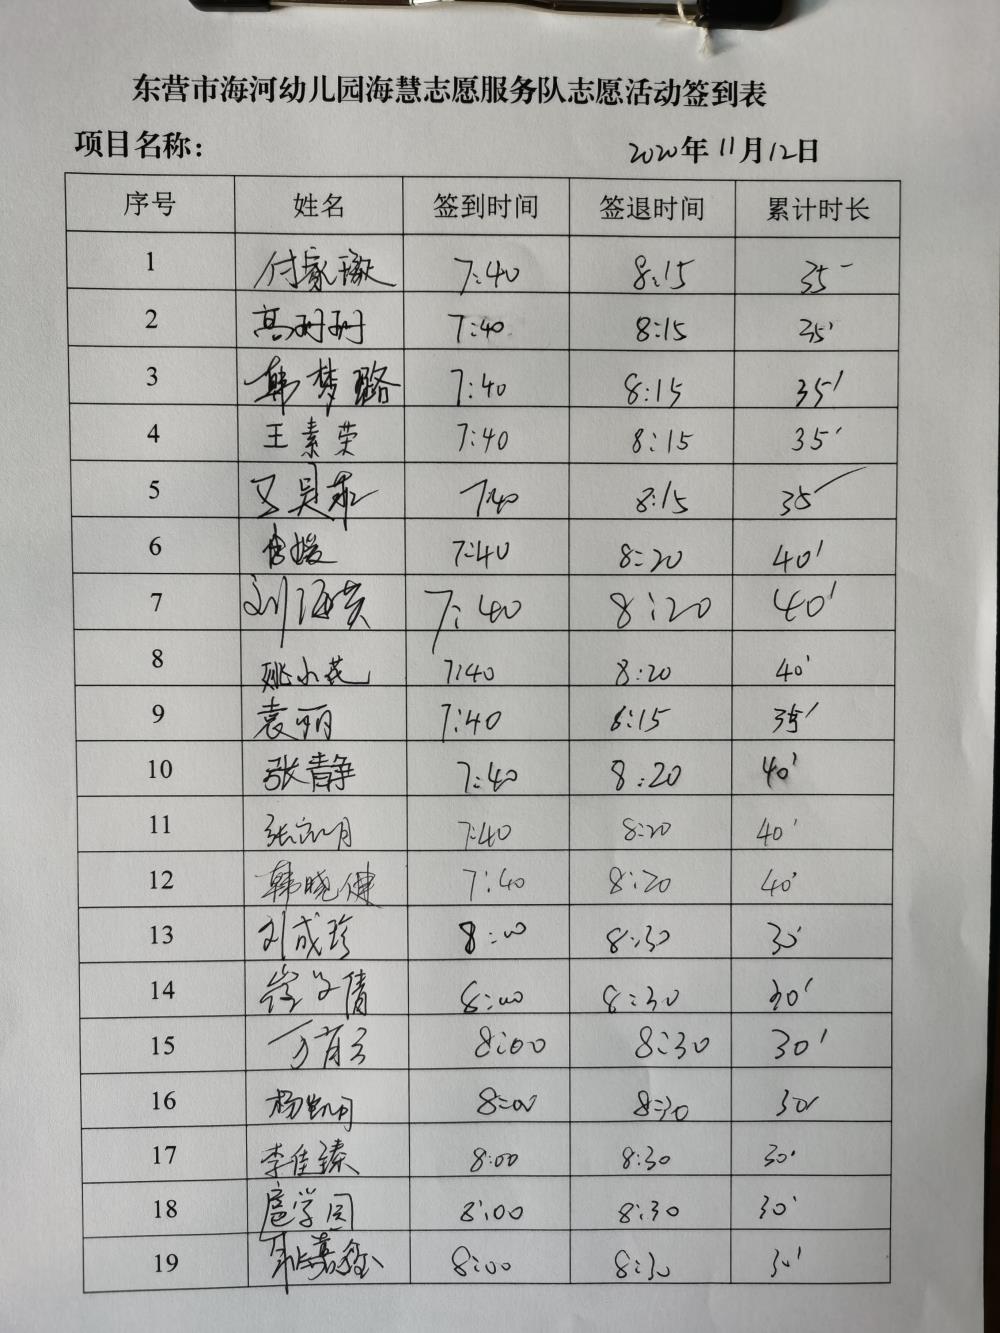 东营市海河幼儿园海慧志愿服务队志愿活动签到表
项目名称： 2020年11月12日
序号 姓名 签到时间 签退时间 累计时长
1 付家璇 7:40 8:15 35
2 高珂珂 7:40 8:15 35'
3 韩梦璐 7:40 8:15 35'
4 王素荣 7:40 8:15 35'
5 7:40 8:15 35'
6 曹媛 7:40 8:20 40'
7 刘海英 7:40 8:20 40'
8 姚小花 7:40 8:20 40'
9 袁丽 7:40 8:15 35'
10 张静 7:40 8:20 40'
11 7:40 8:20 40'
12 韩晓健 7:40 8:20 40'
13 刘成珍 8:00 8:30 30'
14 8:00 8:30 30'
15 8:00 8:30 30'
16 杨凯月 8:00 8:30 30'
17 李佳臻 8:00 8:30 30'
18 扈学园 8:00 8:30 30'
19 8:00 8:30 30'